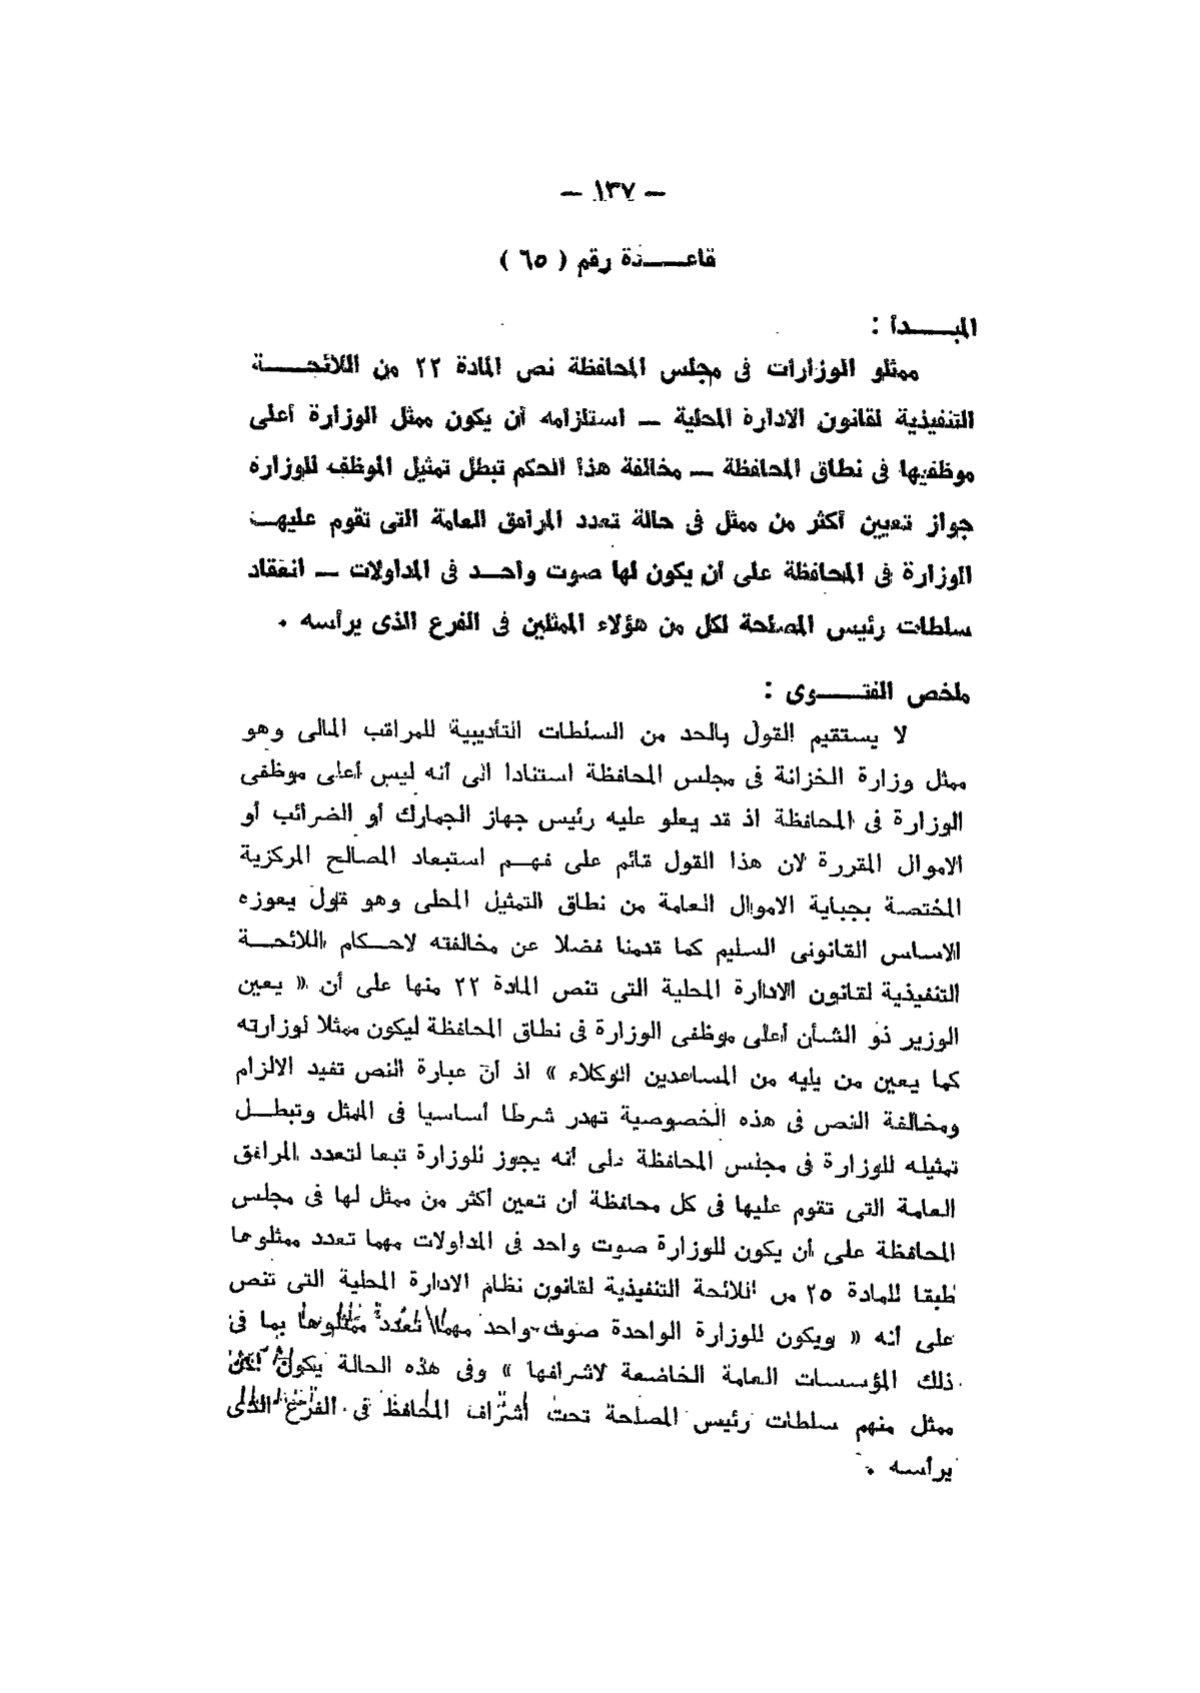 — ١٣٧ —
قاعـــدة رقم ( ٦٥ )
المبـــدأ :
ممثلو الوزارات فى مجلس المحافظة نص المادة ٢٢ من اللائحـــة
التنفيذية لقانون الادارة المحلية — استلزامه أن يكون ممثل الوزارة أعلى
موظفيها فى نطاق المحافظة — مخالفة هذا الحكم تبطل تمثيل الموظف للوزارة
جواز تعيين أكثر من ممثل فى حالة تعدد المرافق العامة التى تقوم عليهـا
الوزارة فى المحافظة على أن يكون لها صوت واحـد فى المداولات — انعقاد
سلطات رئيس المصلحة لكل من هؤلاء الممثلين فى الفرع الذى يرأسه .
ملخص الفتـــوى :
لا يستقيم القول بالحد من السلطات التأديبية للمراقب المالى وهو
ممثل وزارة الخزانة فى مجلس المحافظة استنادا الى أنه ليس أعلى موظفى
الوزارة فى المحافظة اذ قد يعلو عليه رئيس جهاز الجمارك أو الضرائب أو
الاموال المقررة لان هذا القول قائم على فهـم استبعاد المصالح المركزية
المختصة بجباية الاموال العامة من نطاق التمثيل المحلى وهو قول يعوزه
الاساس القانونى السليم كما قدمنا فضلا عن مخالفته لاحـكام اللائحـــة
التنفيذية لقانون الادارة المحلية التى تنص المادة ٢٢ منها على أن « يعين
الوزير ذو الشأن أعلى موظفى الوزارة فى نطاق المحافظة ليكون ممثلا لوزارته
كما يعين من يليه من المساعدين الوكلاء » اذ أن عبارة النص تفيد الالزام
ومخالفة النص فى هذه الخصوصية تهدر شرطا أساسيا فى الممثل وتبطــل
تمثيله للوزارة فى مجلس المحافظة على أنه يجوز للوزارة تبعا لتعدد المرافق
العامة التى تقوم عليها فى كل محافظة أن تعين أكثر من ممثل لها فى مجلس
المحافظة على أن يكون للوزارة صوت واحد فى المداولات مهما تعدد ممثلوها
طبقا للمادة ٢٥ من اللائحة التنفيذية لقانون نظام الادارة المحلية التى تنص
على أنه « ويكون للوزارة الواحدة صوت واحد مهما تعدد ممثلوها بما فى
ذلك المؤسسات العامة الخاضعة لاشرافها » وفى هذه الحالة يكون لكل
ممثل منهم سلطات رئيس المصلحة تحت أشراف المحافظ فى الفرع الذى
يرأسه .